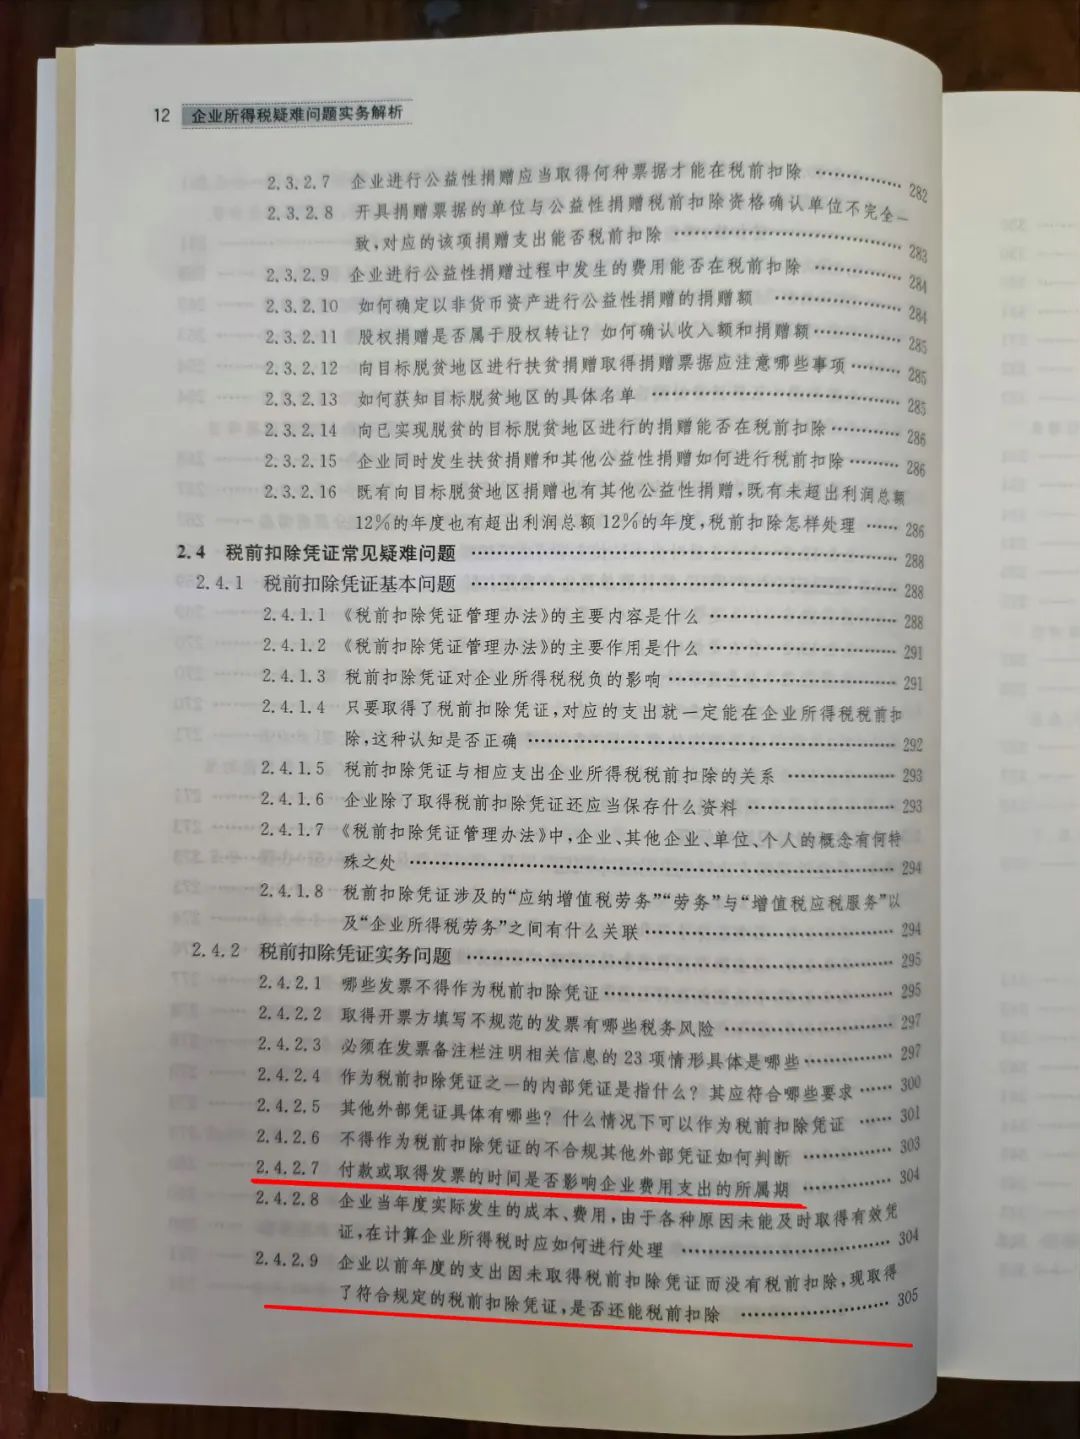 12 企业所得税疑难问题实务解析
2.3.2.7 企业进行公益性捐赠应当取得何种票据才能在税前扣除 …… 282
2.3.2.8 开具捐赠票据的单位与公益性捐赠税前扣除资格确认单位不完全一
致,对应的该项捐赠支出能否税前扣除 …… 283
2.3.2.9 企业进行公益性捐赠过程中发生的费用能否在税前扣除 …… 284
2.3.2.10 如何确定以非货币资产进行公益性捐赠的捐赠额 …… 284
2.3.2.11 股权捐赠是否属于股权转让?如何确认收入额和捐赠额 …… 285
2.3.2.12 向目标脱贫地区进行扶贫捐赠取得捐赠票据应注意哪些事项 …… 285
2.3.2.13 如何获知目标脱贫地区的具体名单 …… 285
2.3.2.14 向已实现脱贫的目标脱贫地区进行的捐赠能否在税前扣除 …… 286
2.3.2.15 企业同时发生扶贫捐赠和其他公益性捐赠如何进行税前扣除 …… 286
2.3.2.16 既有向目标脱贫地区捐赠也有其他公益性捐赠,既有未超出利润总额
12%的年度也有超出利润总额12%的年度,税前扣除怎样处理 …… 286
2.4 税前扣除凭证常见疑难问题 …… 288
2.4.1 税前扣除凭证基本问题 …… 288
2.4.1.1 《税前扣除凭证管理办法》的主要内容是什么 …… 288
2.4.1.2 《税前扣除凭证管理办法》的主要作用是什么 …… 291
2.4.1.3 税前扣除凭证对企业所得税税负的影响 …… 291
2.4.1.4 只要取得了税前扣除凭证,对应的支出就一定能在企业所得税税前扣
除,这种认知是否正确 …… 292
2.4.1.5 税前扣除凭证与相应支出企业所得税税前扣除的关系 …… 293
2.4.1.6 企业除了取得税前扣除凭证还应当保存什么资料 …… 293
2.4.1.7 《税前扣除凭证管理办法》中,企业、其他企业、单位、个人的概念有何特
殊之处 …… 294
2.4.1.8 税前扣除凭证涉及的“应纳增值税劳务”“劳务”与“增值税应税服务”以
及“企业所得税劳务”之间有什么关联 …… 294
2.4.2 税前扣除凭证实务问题 …… 295
2.4.2.1 哪些发票不得作为税前扣除凭证 …… 295
2.4.2.2 取得开票方填写不规范的发票有哪些税务风险 …… 297
2.4.2.3 必须在发票备注栏注明相关信息的23项情形具体是哪些 …… 297
2.4.2.4 作为税前扣除凭证之一的内部凭证是指什么?其应符合哪些要求 …… 300
2.4.2.5 其他外部凭证具体有哪些?什么情况下可以作为税前扣除凭证 …… 301
2.4.2.6 不得作为税前扣除凭证的不合规其他外部凭证如何判断 …… 303
2.4.2.7 付款或取得发票的时间是否影响企业费用支出的所属期 …… 304
2.4.2.8 企业当年度实际发生的成本、费用,由于各种原因未能及时取得有效凭
证,在计算企业所得税时应如何进行处理 …… 304
2.4.2.9 企业以前年度的支出因未取得税前扣除凭证而没有税前扣除,现取得
了符合规定的税前扣除凭证,是否还能税前扣除 …… 305